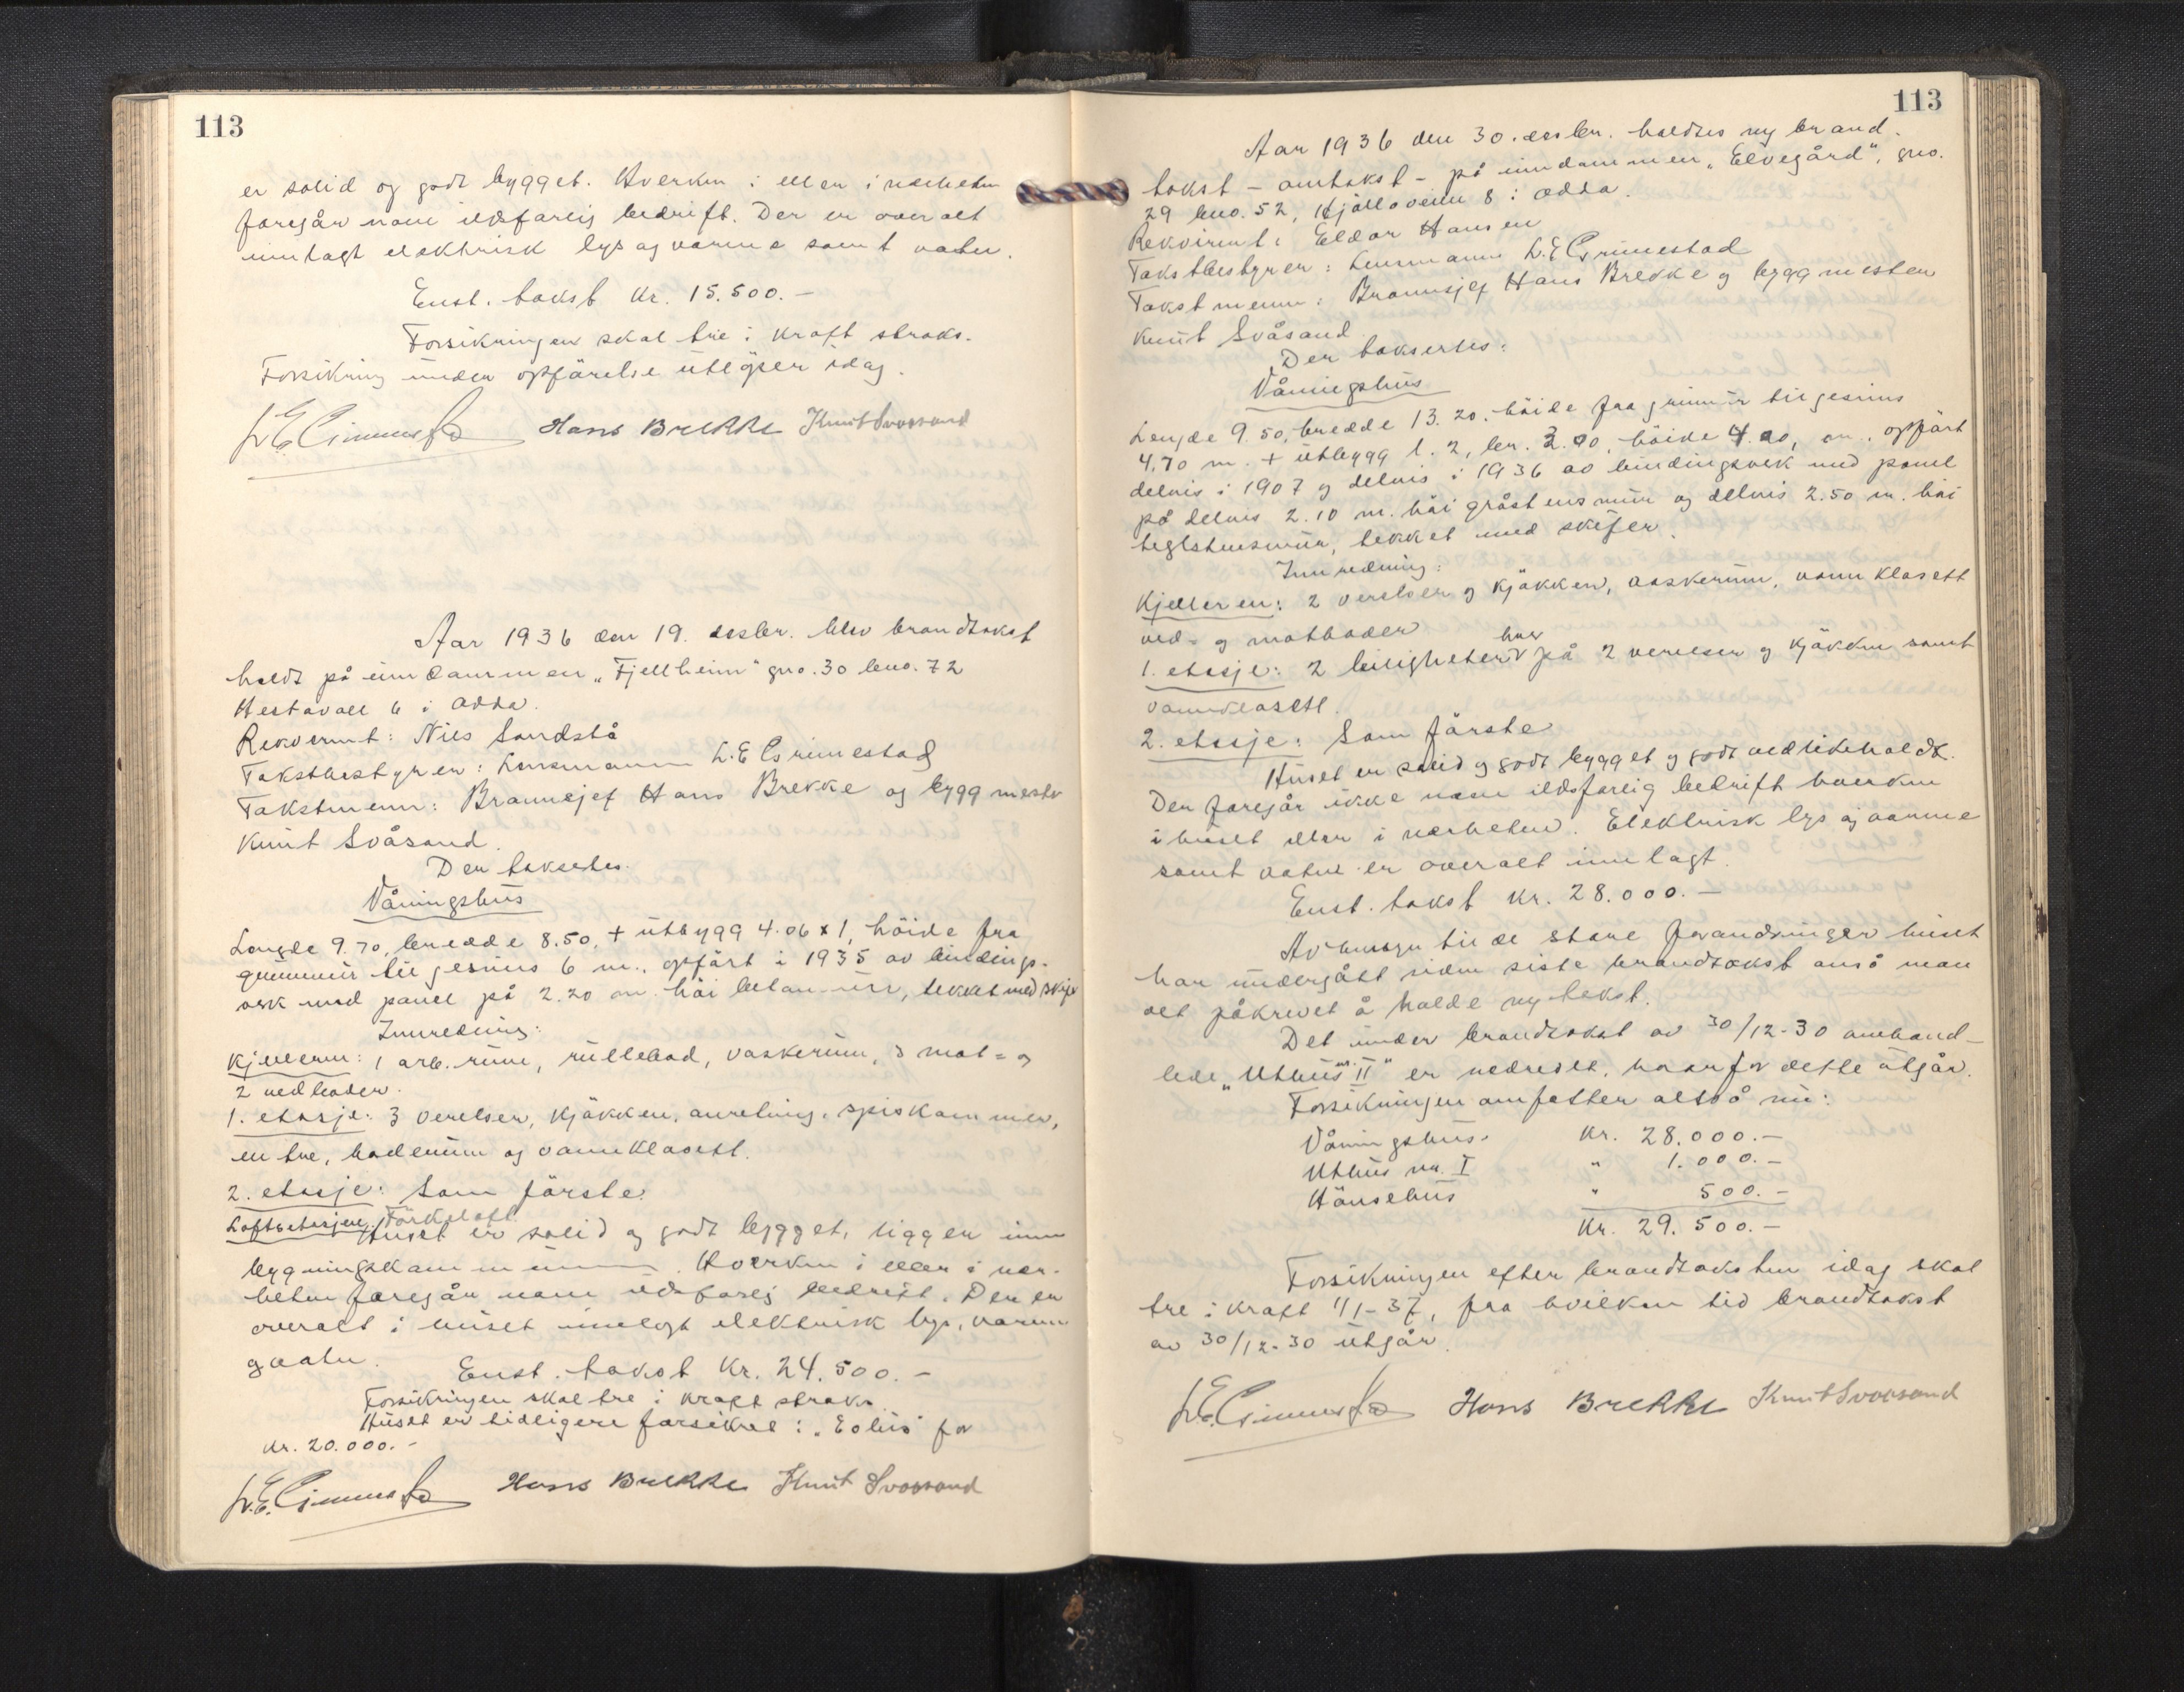 113
er solid og godt bygget. Hverken i eller i nærheten
foregår noen ildsfarlig bedrift. Der er overalt
innlagt elektrisk lys og varme samt vatn.
Enst. takst kr. 15.500.-
Forsikringen skal tre i kraft straks.
Forsikring under opførelse utløper idag.
L E Grimestad Hans Brekke Knut Svaasand
Aar 1936 den 19. desbr. blev brandtakst
holdt på eiendommen „Fjellheim" gno. 30 bno. 72
Hestavoll 6 i Odda.
Rekvirent: Nils Sandstå
Takstbestyrer: Lensmann L. E Grimestad
Takstmenn: Brannsjef Hans Brekke og byggmester
Knut Svåsand.
Der takertes:
Våningshus
Lengde 9.70, bredde 8.50, + utbygg 4.06 x 1, høide fra
grunnmur til gesims 6 m., opført i 1935 av bindings-
verk med panel på 2.20 m. høi betonmur, tekket med skifer
Innredning:
Kjelleren: 1 arb. rum, rullebod, vaskerum, 3 mat- og
2 vedboder.
1. etasje: 3 værelser, kjøkken, anretning, spiskammer,
entre, baderum og vannklosett.
2. etasje: Som første.
Loftsetasjen: Tørkeloft
Huset er solid og godt bygget, ligger inn
bygningskommunen. Hverken i eller i nær-
heten foregår noen ildsfarlig bedrift. Der er
overalt i huset innlagt elektrisk lys, varme
og vatn.
Enst. takst Kr. 24.500.-
Forsikringen skal tre i kraft straks.
Huset er tidligere forsikret i „Eolus" for
kr. 20.000.-
L. E. Grimestad Hans Brekke Knut Svaasand
113
Aar 1936 den 30. desbr. holdtes ny brand-
takst - omtakst - på eiendommen „Elvegård", gno.
29 bno. 52, Hjølloveien 8 i Odda.
Rekvirent: Eldor Hansen
Takstbestyrer: Lensmann L. E Grimestad
Takstmenn: Brannsjef Hans Brekke og byggmester
Knut Svåsand
Der taksertes:
Våningshus
Lengde 9.50, bredde 13.20. høide fra grunnmur til gesims
4.70 m. + utbygg l. 2, br. høide m., opført
delvis i 1907 og delvis i 1936 av bindingsverk med panel
på delvis 2.10 m. høi gråstensmur og delvis 2.50 m. høi
teglstensmur, tekket med skifer.
Innredning:
Kjelleren: 2 værelser og kjøkken, vaskerum, vannklosett
ved- og matboder
1. etasje: 2 leiligheter hver på 2 værelser og kjøkken samt
vannklosett.
2. etasje: Som første
Huset er solid og godt bygget og godt vedlikeholdt.
Der foregår ikke noen ildsfarlig bedrift hverken
i huset eller i nærheten. Elektrisk lys og varme
samt vatn er overalt innlagt.
Enst. takst kr. 28.000.-
Av hensyn til de store forandringer huset
har undergått siden siste brandtakst anså man
det påkrevet å holde ny takst.
Det under brandtakst av 30/12-30 omhand-
lede „Uthus nr. II" er nedrevet, hvorfor dette utgår.
Forsikringen omfatter altså nu:
Våningshus. kr. 28.000.-
Uthus nr. I " 1.000.-
Hønsehus " 500.-
Kr. 29.500.-
Forsikringen efter brandtaksten idag skal
tre i kraft 1/1-37, fra hvilken tid brandtakst
av 30/12-30 utgår.
L. E. Grimestad Hans Brekke Knut Svaasand